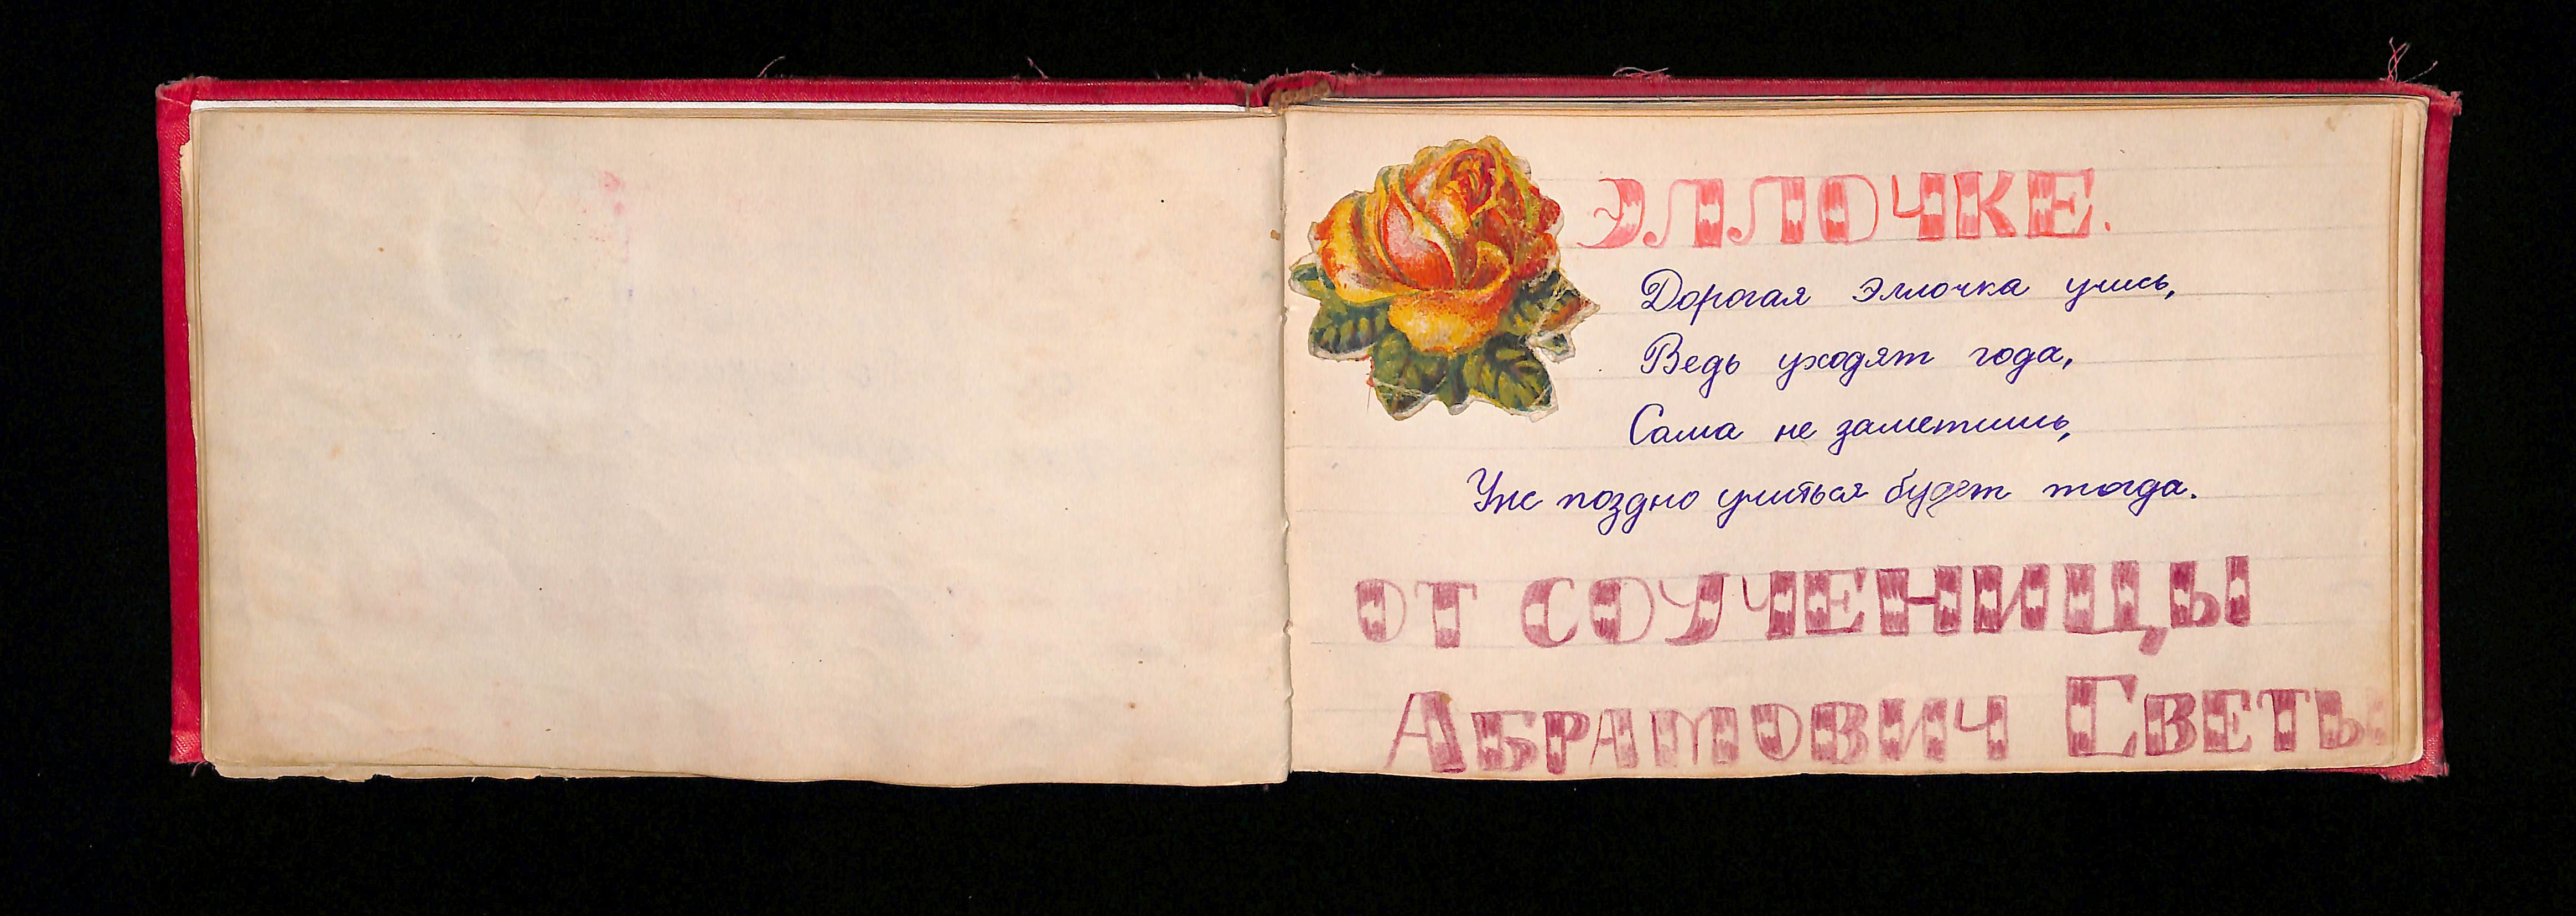 ЭЛЛОЧКЕ.
Дорогая Эллочка учись,
Ведь уходят года,
Сама не заметишь,
Уж поздно учиться будет тогда.
ОТ СОУЧЕНИЦЫ
АБРАМОВИЧ СВЕТЫ